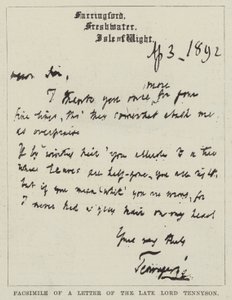 Farringford,
Freshwater,
Isle of Wight.
Ap 3_ 1892
Dear Sir,
more
I thank you once for your
fine lines, tho' they somewhat abash me
as overpraise
If by 'winter hair' you allude to a tree
whose leaves are half-gone, you are right.
but if you mean 'white' you are wrong, for
I never had a grey hair on my head
Yours very truly
Tennyson
FACSIMILE OF A LETTER OF THE LATE LORD TENNYSON.